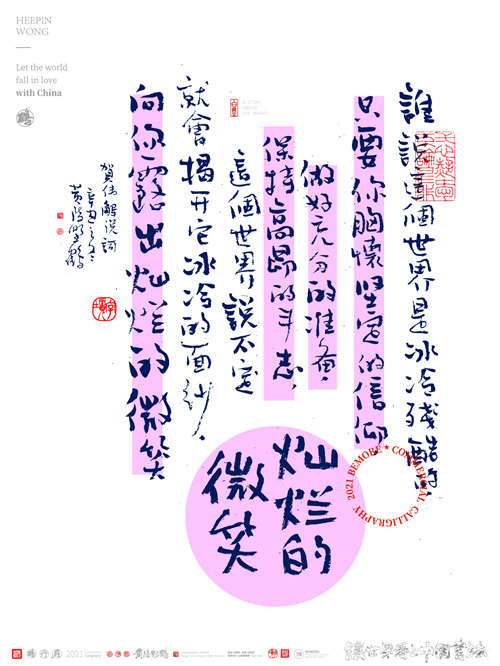 HEEPIN
WONG
Let the world
fall in love
with China
誰説這個世界是冰冷殘酷的
只要你胸懷堅定的信仰
做好充分的準備，
保持高昂的斗志，
這個世界説不定
就會揭开它冰冷的面紗，
向你露出灿烂的微笑
賀偉解説詞
灿烂的
微笑
2021 BEMORE ★ COMMERCIAL CALLIGRAPHY
2021